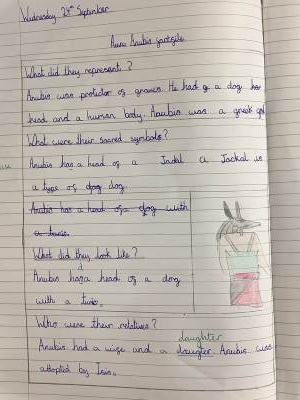 Wednesday 24th September
Anubis factfile
What did they represent?
Anubis was protector of graves. He had a dog
head and a human body. Anubis was a great god
What were their sacred symbols?
Anubis has a head of a Jackal a Jackal is
a type of dog dog.
Anubis has a head of a dog with
a tunic.
What did they look like?
Anubis had a head of a dog
with a tunic.
Who were their relatives?
daughter
Anubis had a wife and a daugter. Anubis was
adopted by Isis.